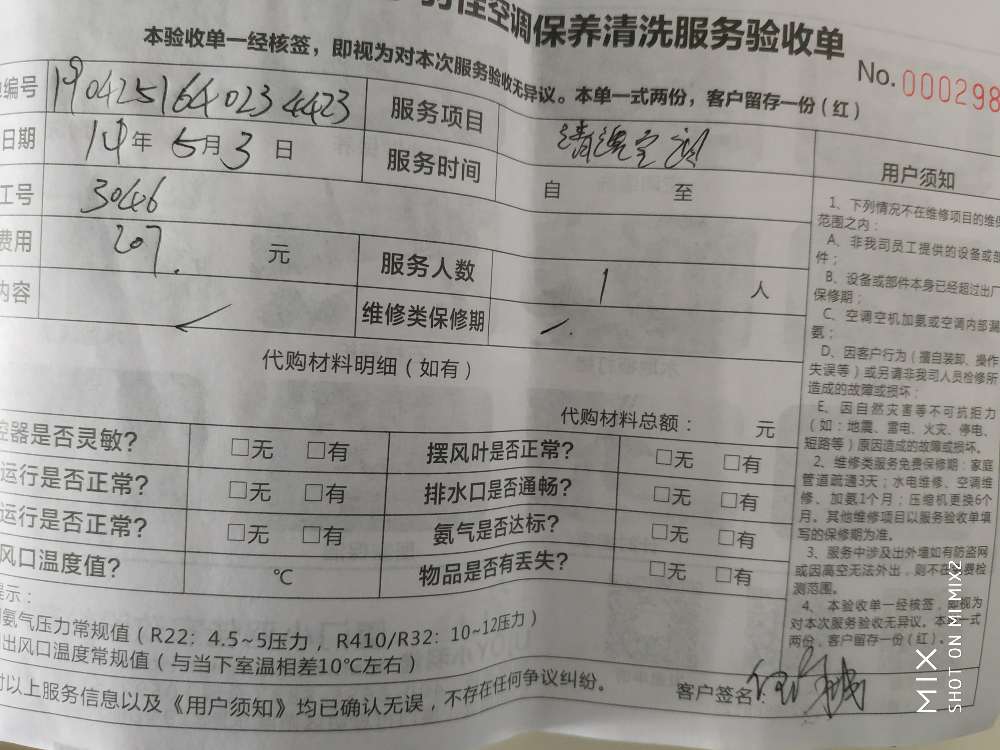 空调保养清洗服务验收单
No. 000298
本验收单一经核签，即视为对本次服务验收无异议。本单一式两份，客户留存一份（红）
编号 190425164023 4423 服务项目
日期 年 5月3日 服务时间 自 至
工号 3046
费用 207. 元 服务人数 1 人
内容 维修类保修期
代购材料明细（如有）
代购材料总额： 元
控器是否灵敏？ □无 □有 摆风叶是否正常？ □无 □有
运行是否正常？ □无 □有 排水口是否通畅？ □无 □有
运行是否正常？ □无 □有 氨气是否达标？ □无 □有
风口温度值？ ℃ 物品是否有丢失？ □无 □有
提示：
氨气压力常规值（R22：4.5~5压力， R410/R32：10~12压力）
出风口温度常规值（与当下室温相差10℃左右）
对以上服务信息以及《用户须知》均已确认无误，不存在任何争议纠纷。
客户签名：
用户须知
1、下列情况不在维修项目的维保
范围之内：
A、非我司员工提供的设备或部
件；
B、设备或部件本身已经超过出厂
保修期；
C、空调空机加氨或空调内部漏
氨；
D、因客户行为（擅自装卸、操作
失误等）或另请非我司人员检修所
造成的故障或损坏：
E、因自然灾害等不可抗拒力
（如：地震、雷电、火灾、停电、
短路等）原因造成的故障或损坏。
2、维修类服务免费保修期：家庭
管道疏通3天；水电维修、空调维
修、加氨1个月；压缩机更换6个
月。其他维修项目以服务验收单填
写的保修期为准。
3、服务中涉及出外墙如有防盗网
或因高空无法外出，则不在免费检
测范围。
4、本验收单一经核签，即视为
对本次服务验收无异议。本单一式
两份，客户留存一份（红）。
MIX
SHOT ON MI MIX2